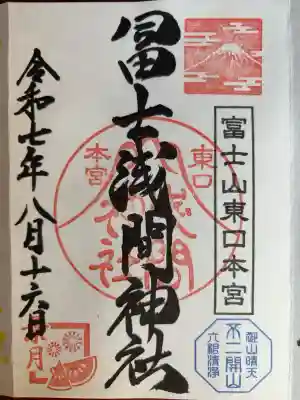 富士山東口本宮
冨士浅間神社
東口
本宮
令和七年八月十六日
葉月
不二開山
六根清浄